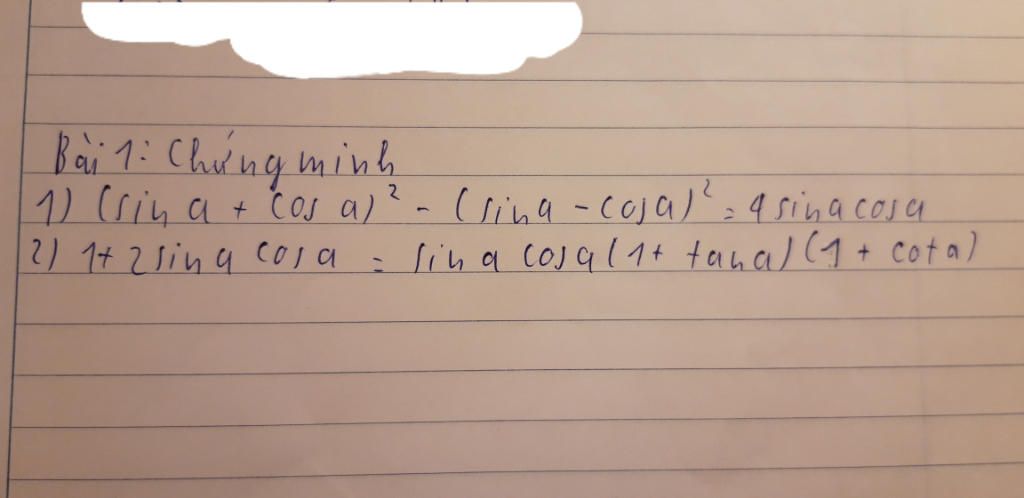 Bài 1: Chứng minh
1) (sin a + cos a)² - (sin a - cos a)² = 4 sin a cos a
2) 1 + 2 sin a cos a = sin a cos a (1 + tan a) (1 + cot a)